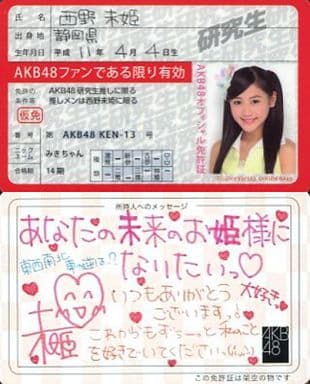 氏名 西野 未姫
出身地 静岡県
生年月日 平成 11年 4月 4日生
研究生
AKB48ファンである限り有効
免許の条件等 AKB48研究生推しに限る
推しメンは西野未姫に限る
仮免
番号 第 AKB48 KEN-13 号
ニックネーム みきちゃん
合格期 14期
種類
AKB48オフィシャル免許証
所持人へのメッセージ
あなたの未来のお姫様に
なりたいっ♡
東西南北
いつもありがとう
ございますっ
大好き
未姫
これからもずぅーっと私のこと
を好きでいてくださいっ
AKB
48
この免許証は架空の物です